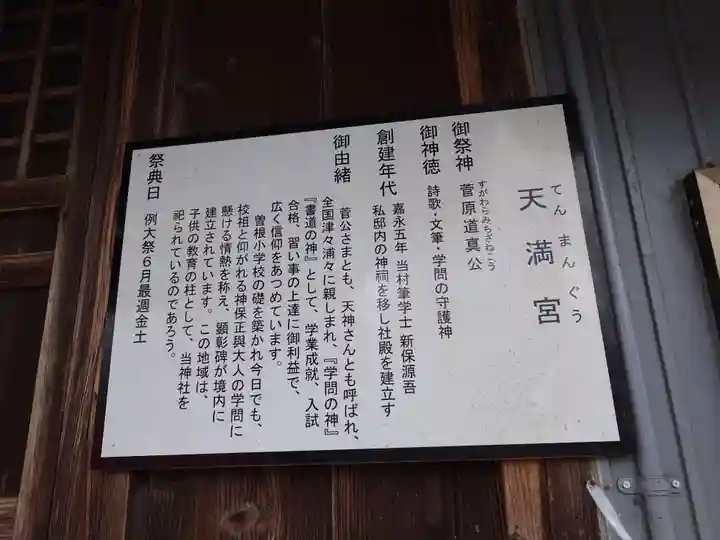 てんまんぐう
天満宮
すがわらみちざねこう
御祭神 菅原道真公
御神徳 詩歌・文筆・学問の守護神
創建年代 嘉永五年 当村筆学士 新保源吾
私邸内の神祠を移し社殿を建立す
御由緒 菅公さまとも、天神さんとも呼ばれ、
全国津々浦々に親しまれ、『学問の神』
『書道の神』として、学業成就、入試
合格、習い事の上達に御利益で、
広く信仰をあつめています。
曽根小学校の礎を築かれ今日でも、
校祖と仰がれる神保正與大人の学問に
懸ける情熱を称え、顕彰碑が境内に
建立されています。この地域は、
子供の教育の柱として、当神社を
祀られているのであろう。
祭典日 例大祭６月最週金土